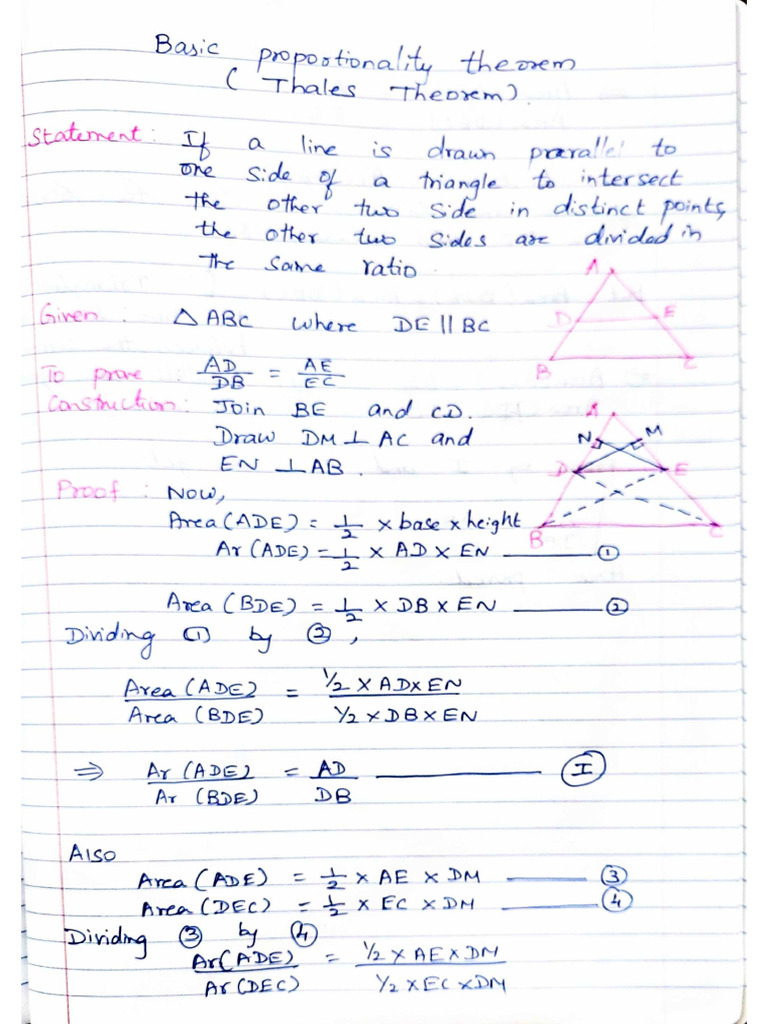 Basic proportionality theorem
( Thales Theorem).
Statement: If a line is drawn prarallel to
one side of a triangle to intersect
the other two side in distinct points,
the other two sides are divided in
the same ratio.
A
D E
B C
Given : △ABC where DE || BC
To prove : AD/DB = AE/EC
Construction: Join BE and CD.
Draw DM ⊥ AC and
EN ⊥ AB.
A
N M
D E
B C
Proof : Now,
Area (ADE) = 1/2 × base × height
Ar (ADE) = 1/2 × AD × EN ——— ①
Area (BDE) = 1/2 × DB × EN ——— ②
Dividing (1) by ②,
Area (ADE)/Area (BDE) = 1/2 × AD × EN/1/2 × DB × EN
⇒ Ar (ADE)/Ar (BDE) = AD/DB ——— Ⓘ
Also
Area (ADE) = 1/2 × AE × DM ——— ③
Area (DEC) = 1/2 × EC × DM ——— ④
Dividing ③ by ④
Ar (ADE)/Ar (DEC) = 1/2 × AE × DM/1/2 × EC × DM